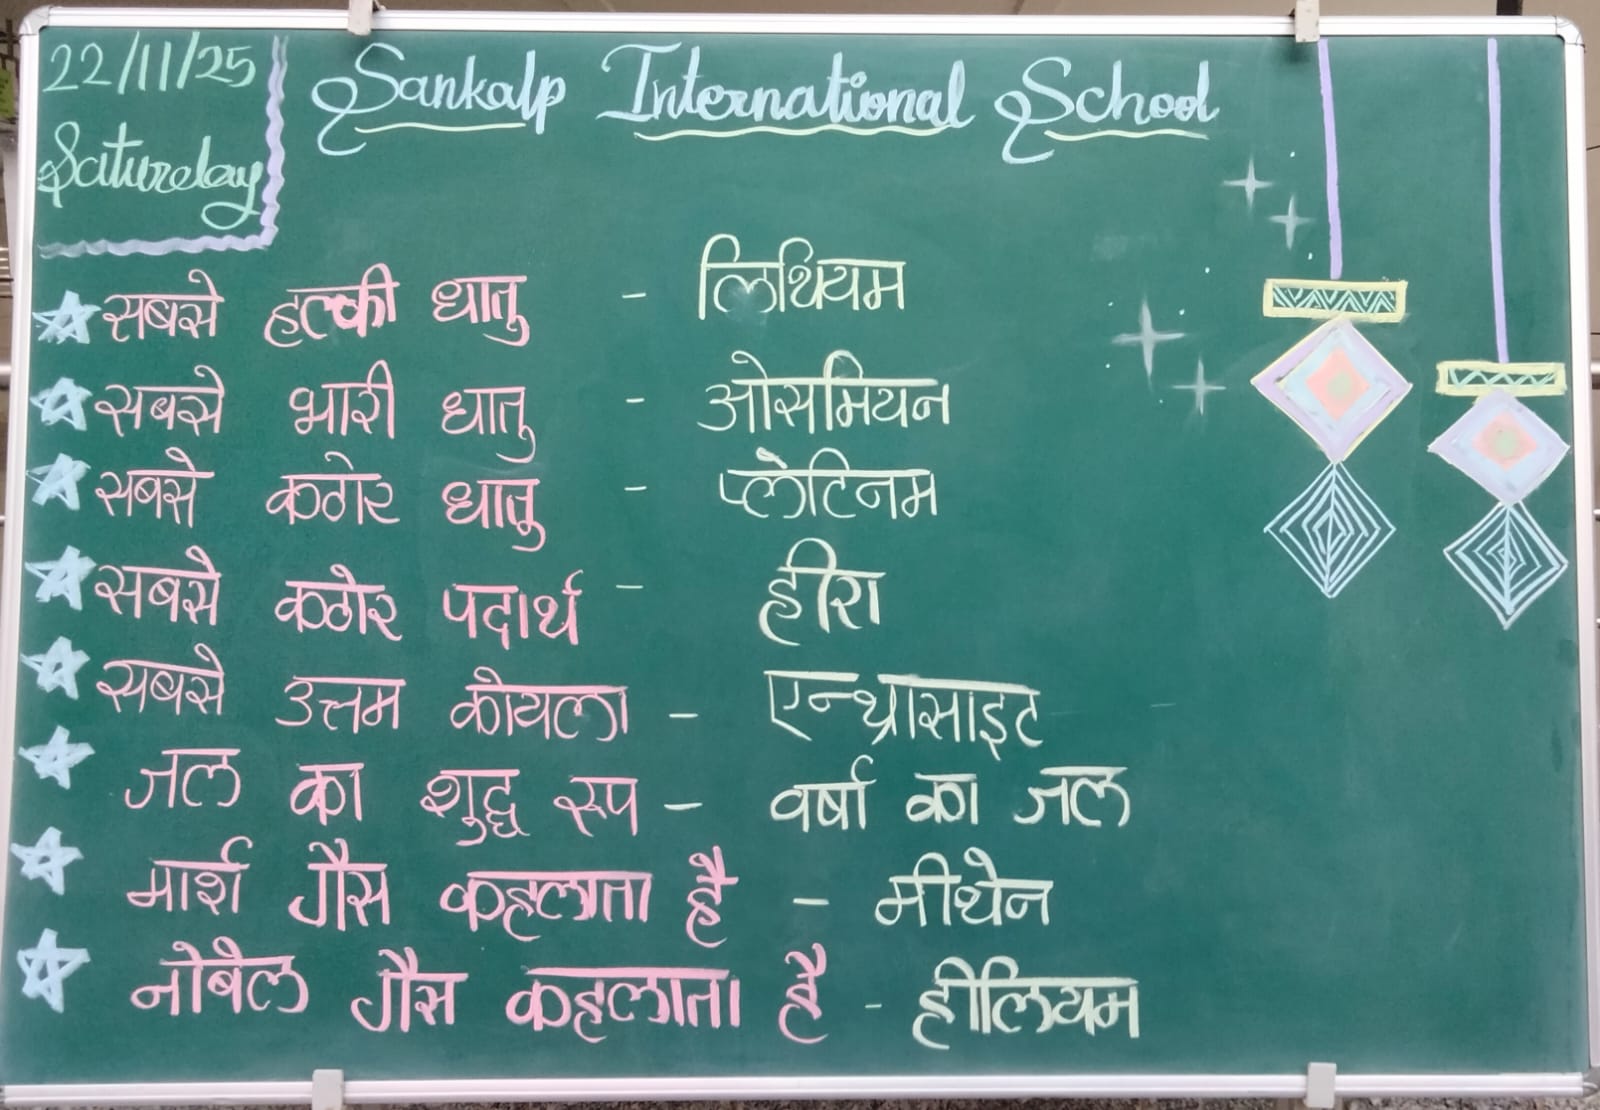 22/11/25
Saturday
Sankalp International School
सबसे हल्की धातु - लिथियम
सबसे भारी धातु - ओसमियन
सबसे कठोर धातु - प्लेटिनम
सबसे कठोर पदार्थ - हीरा
सबसे उत्तम कोयला - एन्थ्रासाइट
जल का शुद्ध रूप - वर्षा का जल
मार्श गैस कहलाता है - मीथेन
नोबैल गैस कहलाता है - हीलियम